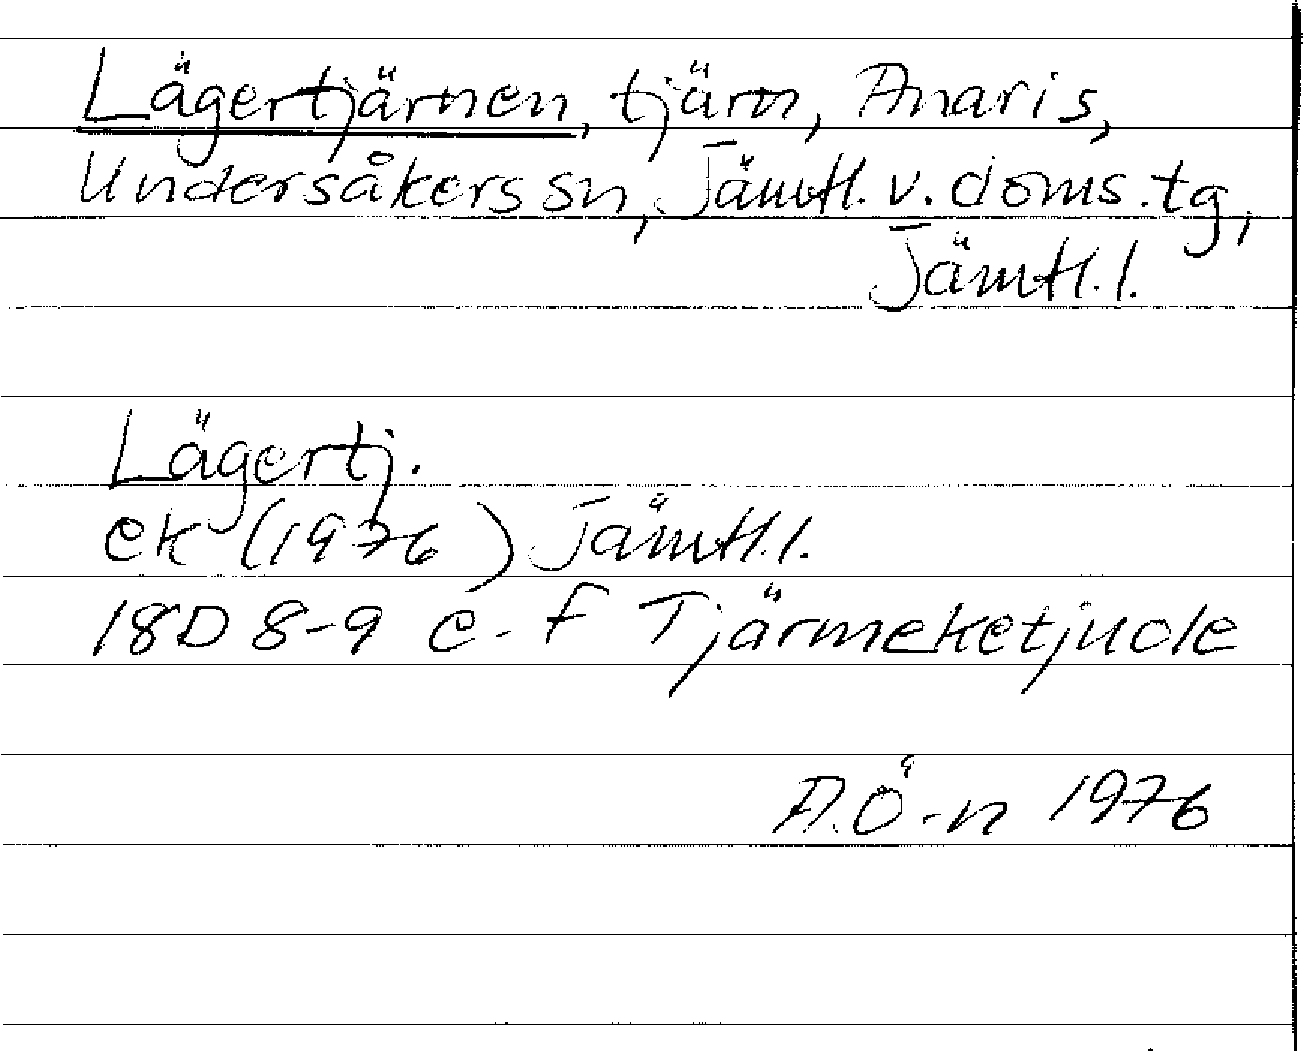 Lägertjärnen, tjärn, Anaris,
Undersåkers sn, Jämtl. v. doms. tg,
Jämtl. l.
Lägertj.
ek (1976) Jämtl. l.
18D 8-9 e-f Tjärmeketjude
A.Ö-n 1976